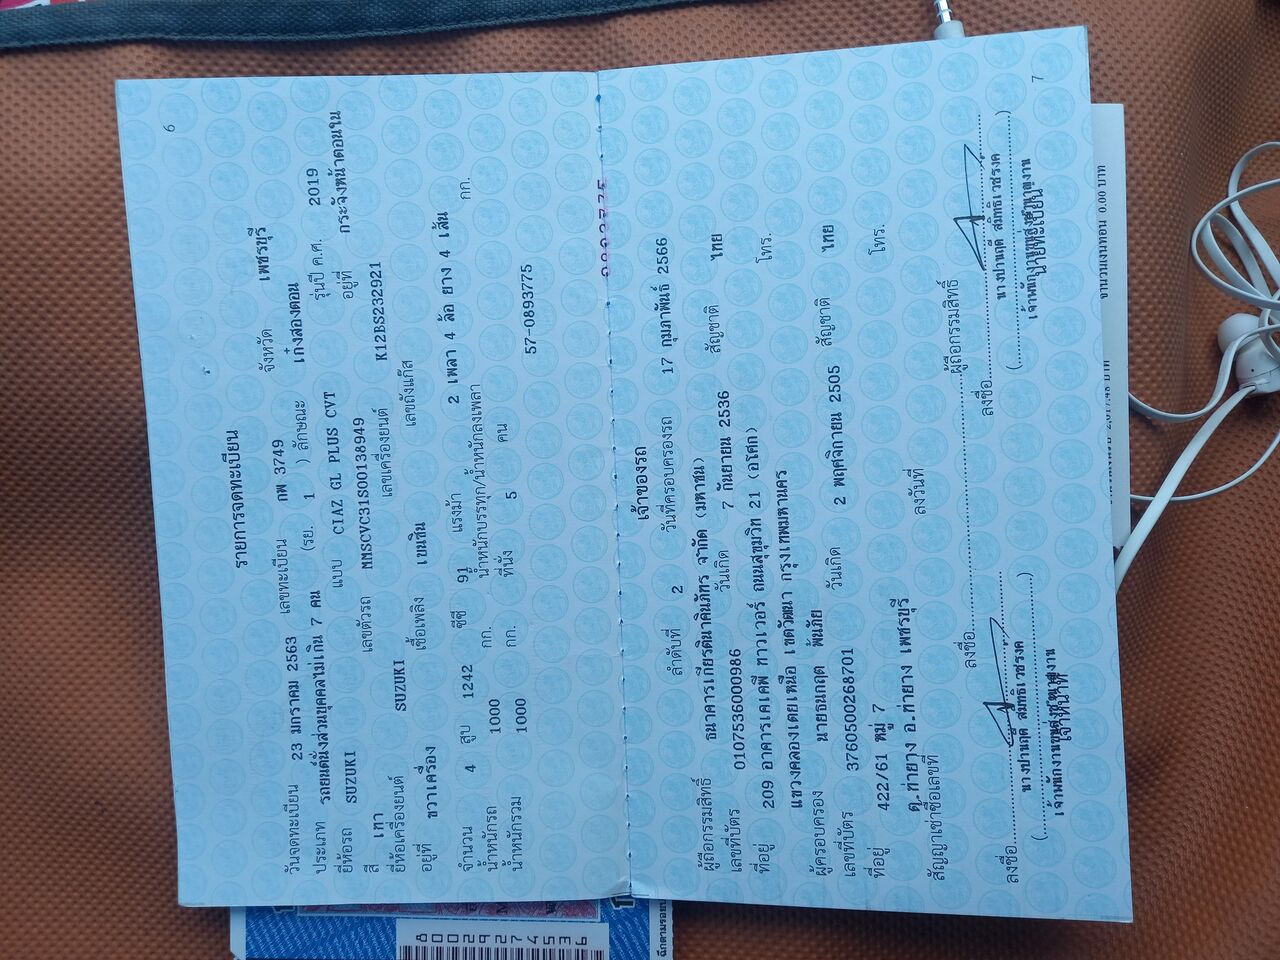 6
รายการจดทะเบียน
วันจดทะเบียน 23 มกราคม 2563 เลขทะเบียน กพ 3749 จังหวัด เพชรบุรี
ประเภท รถยนต์นั่งส่วนบุคคลไม่เกิน 7 คน (รย. 1 ) ลักษณะ เก๋งสองตอน
ยี่ห้อรถ SUZUKI แบบ CIAZ GL PLUS CVT รุ่นปี ค.ศ. 2019
สี เทา เลขตัวรถ MMSCVC31S00138949 อยู่ที่ กระจังหน้าตอนใน
ยี่ห้อเครื่องยนต์ SUZUKI เลขเครื่องยนต์ K12BS232921
อยู่ที่ ขวาเครื่อง เชื้อเพลิง เบนซิน เลขถังแก๊ส
จำนวน 4 สูบ 1242 ซีซี 91 แรงม้า 2 เพลา 4 ล้อ ยาง 4 เส้น
น้ำหนักรถ 1000 กก. น้ำหนักบรรทุก/น้ำหนักลงเพลา กก.
น้ำหนักรวม 1000 กก. ที่นั่ง 5 คน 57-0893775
7
เจ้าของรถ
ลำดับที่ 2 วันที่ครอบครองรถ 17 กุมภาพันธ์ 2566
ผู้ถือกรรมสิทธิ์ ธนาคารเกียรตินาคินภัทร จำกัด (มหาชน)
เลขที่บัตร 0107536000986 วันเกิด 7 กันยายน 2536 สัญชาติ ไทย
ที่อยู่ 209 อาคารเคเคพี ทาวเวอร์ ถนนสุขุมวิท 21 (อโศก) โทร.
แขวงคลองเตยเหนือ เขตวัฒนา กรุงเทพมหานคร
ผู้ครอบครอง นายธนกฤต พ้นภัย
เลขที่บัตร 3760500268701 วันเกิด 2 พฤศจิกายน 2505 สัญชาติ ไทย
ที่อยู่ 422/61 หมู่ 7 โทร.
ต.ท่ายาง อ.ท่ายาง เพชรบุรี
สัญญาเช่าซื้อเลขที่ ลงวันที่
ลงชื่อ ผู้ถือกรรมสิทธิ์
ลงชื่อ ลงชื่อ
( นางปานฤดี สมิทธิเวชรงค ) ( นางปานฤดี สมิทธิเวชรงค )
เจ้าพนักงานขนส่งชำนาญงาน เจ้าพนักงานขนส่งชำนาญงาน
เจ้าหน้าที่ นายทะเบียน
จำนวนเงินทอน 0.00 บาท
8002927453 36
ฉีกตามรอย